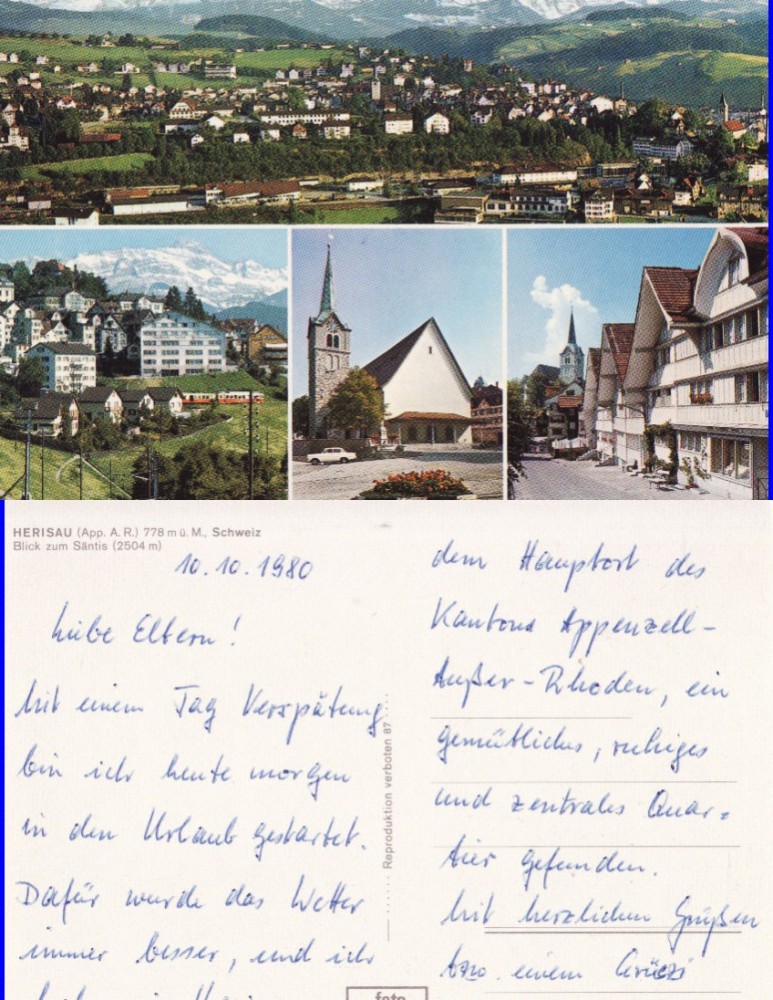 HERISAU (App. A. R.) 778 m ü. M., Schweiz
Blick zum Säntis (2504 m)
10.10.1980
Liebe Eltern!
Mit einem Tag Verspätung
bin ich heute morgen
in den Urlaub gestartet.
Dafür wurde das Wetter
immer besser, und ich
Reproduktion verboten 87
dem Hauptort des
Kantons Appenzell-
Außer-Rhoden, ein
gemütliches, ruhiges
und zentrales Quar-
tier gefunden.
Mit herzlichen Grüßen
bzw. einem Grüezi
foto